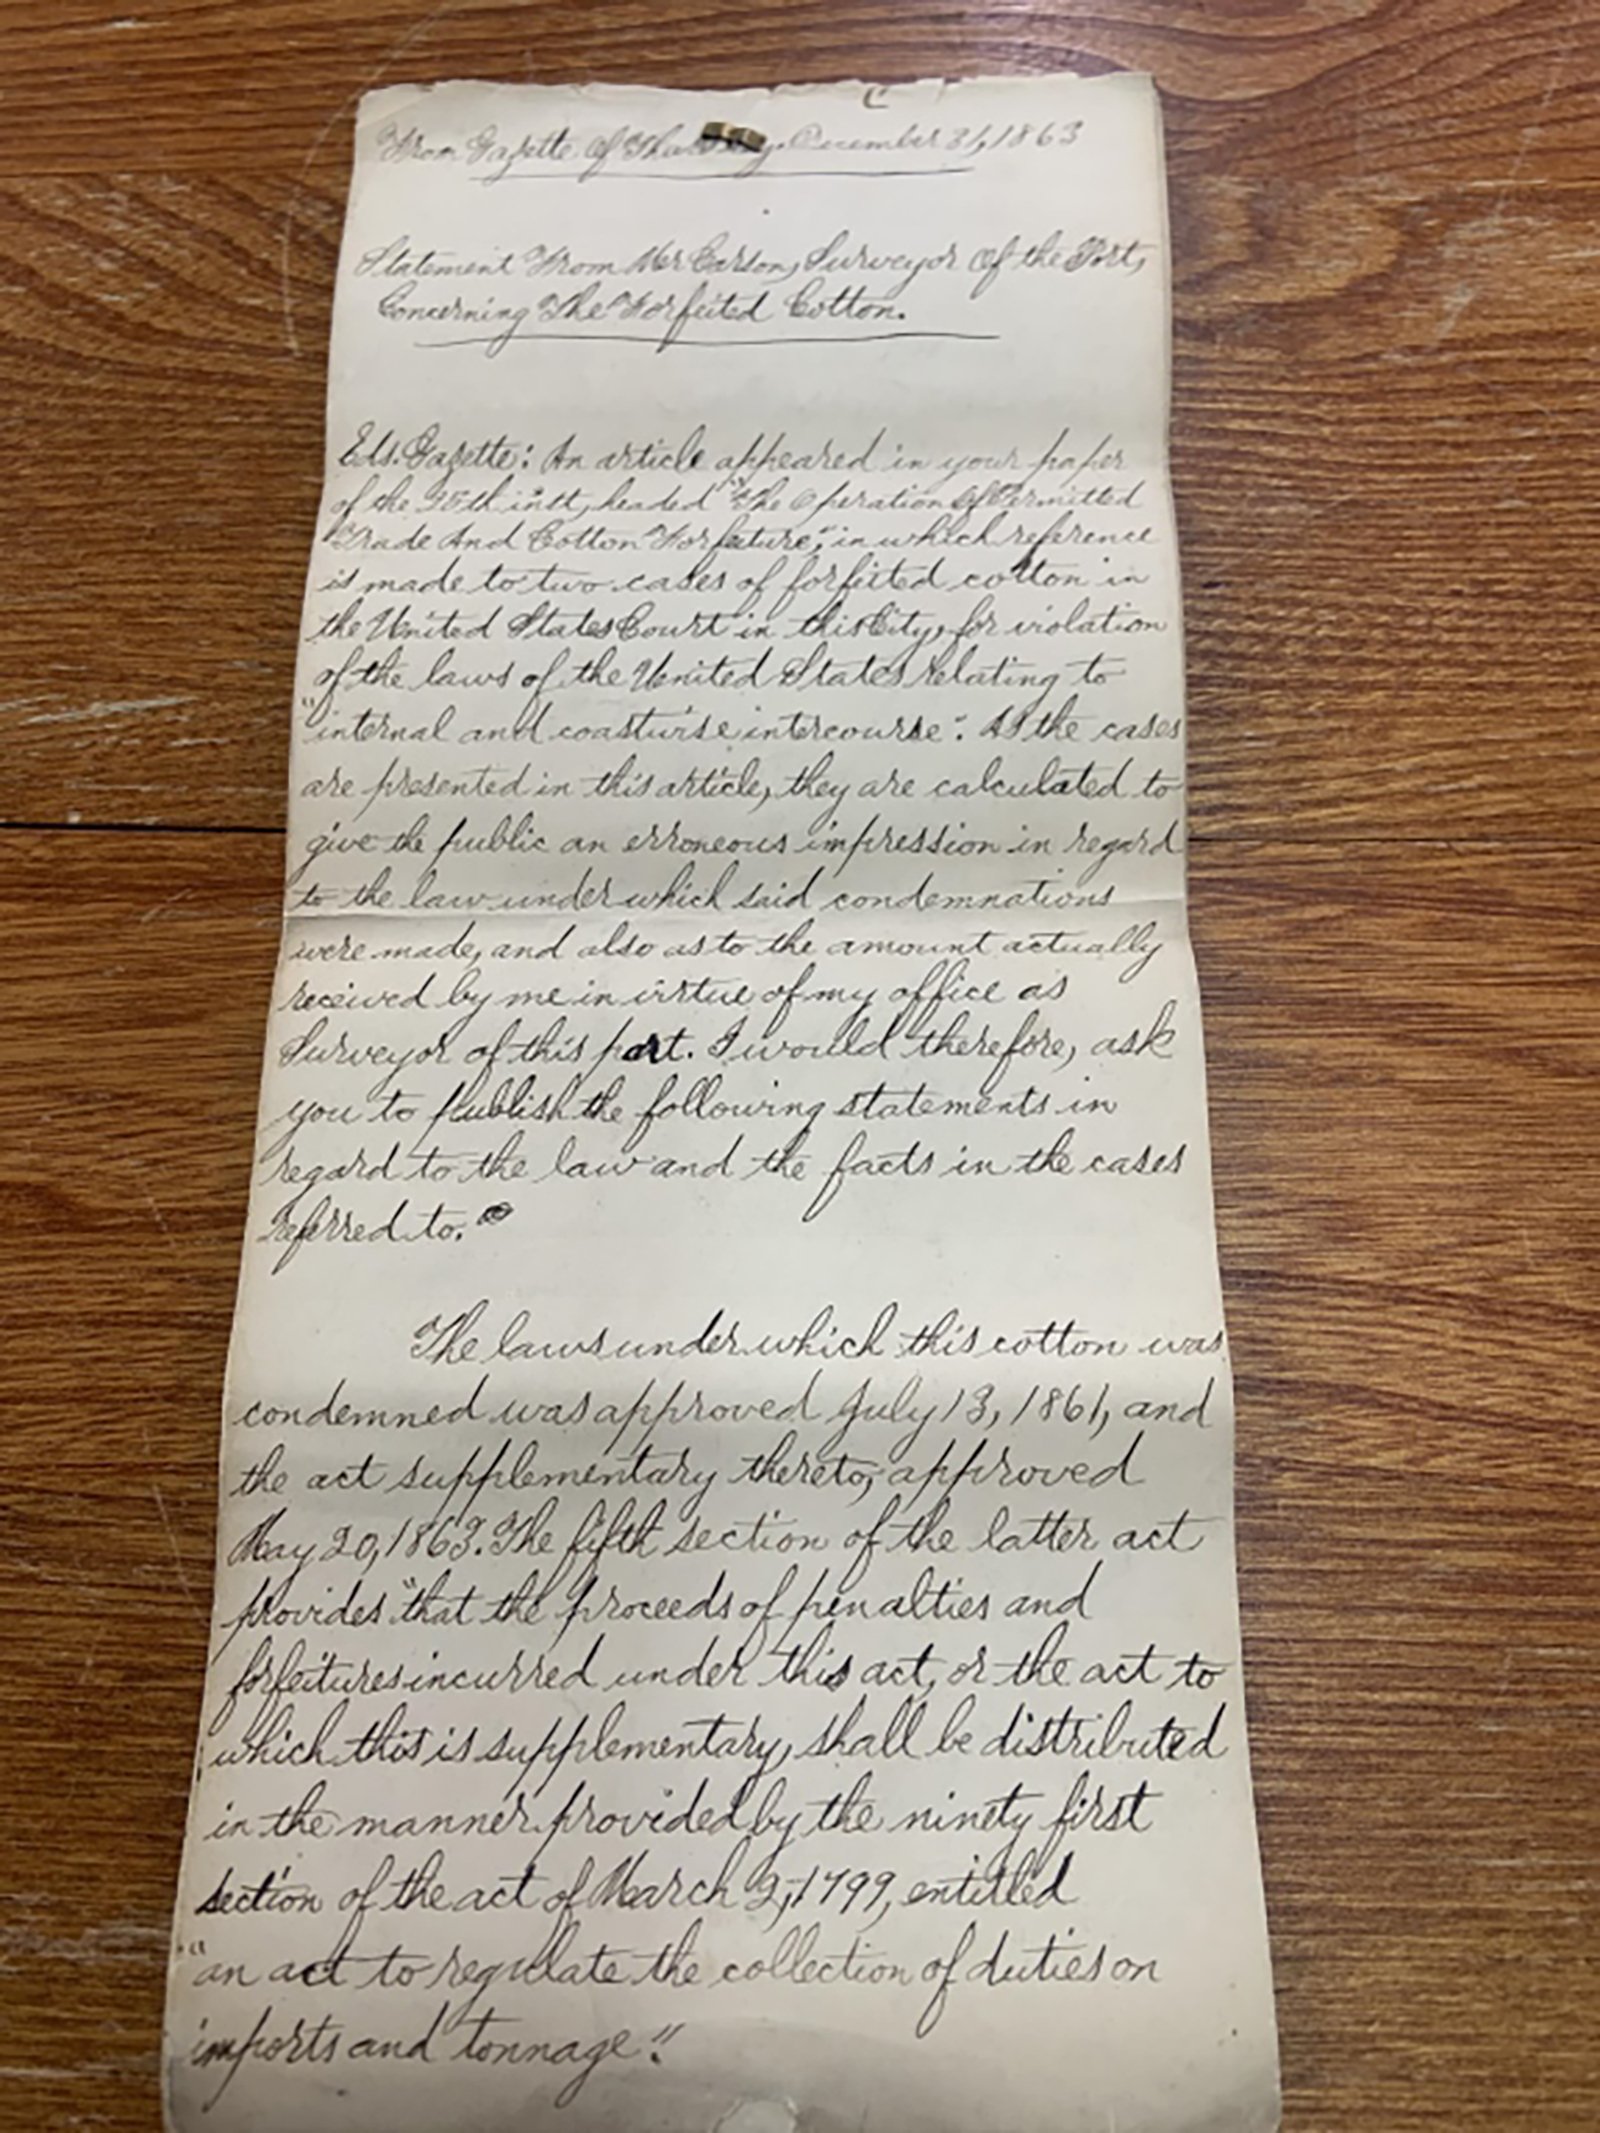 From Gazette Of Thursday, December 31, 1863
Statement From Mr Carson, Surveyor Of the Port,
Concerning The Forfeited Cotton.
Eds. Gazette: An article appeared in your paper
of the 25th inst, headed "The Operation Of Permitted
Trade And Cotton Forfeiture", in which reference
is made to two cases of forfeited cotton in
the United States Court in this City, for violation
of the laws of the United States relating to
"internal and coastwise intercourse". As the cases
are presented in this article, they are calculated to
give the public an erroneous impression in regard
to the law under which said condemnations
were made, and also as to the amount actually
received by me in virtue of my office as
Surveyor of this port. I would therefore, ask
you to publish the following statements in
regard to the law and the facts in the cases
referred to.
The laws under which this cotton was
condemned was approved July 13, 1861, and
the act supplementary thereto, approved
May 20, 1863. The fifth section of the latter act
provides "that the proceeds of penalties and
forfeitures incurred under this act, or the act to
which this is supplementary, shall be distributed
in the manner provided by the ninety first
section of the act of March 2, 1799, entitled
"an act to regulate the collection of duties on
imports and tonnage".